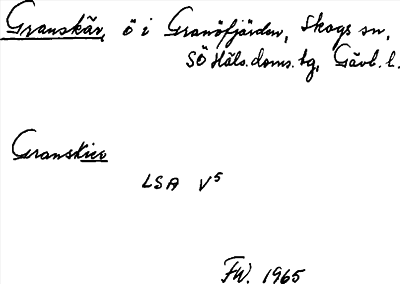 Granskär, ö i Granöfjärden, Skogs sn,
SÖ Häls.doms.tg, Gävl. l.
Granskier
LSA V5
FW. 1965